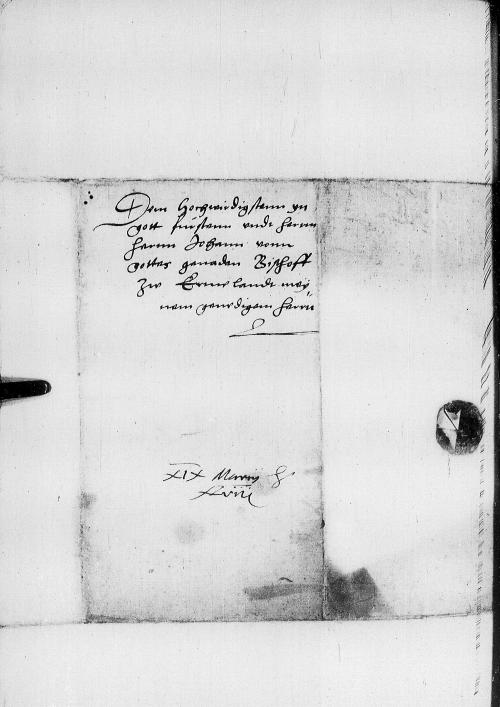 Dem Hochwirdigstenn yn
gott fürstenn undt herrnn
herrnn Johann vonn
gottes genaden Bischoff
zw Ermelandt mey
nem genedigem herrn
XIX